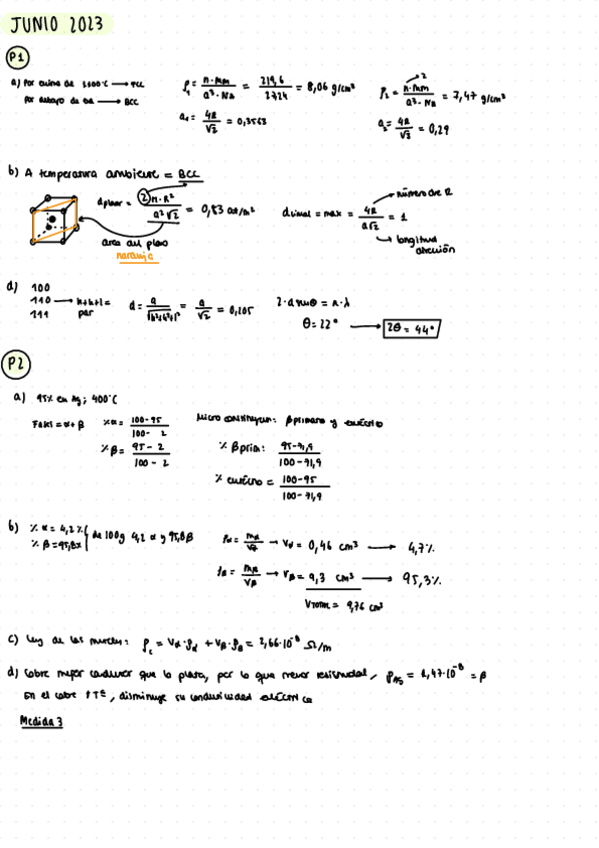 JUNIO 2023
P1
a) Por encima de 1100°C → FCC
Por debajo de → BCC
ρ₁ = n·Mm / a³·NA = 219,6 / 2724 = 8,06 g/cm³
a₁ = 4R / √2 = 0,3563
2
ρ₂ = n·Mm / a³·NA = 7,47 g/cm³
a₂ = 4R / √3 = 0,29
b) A temperatura ambiente = BCC
dplanar = 2π·R² / a²√2 = 0,83 at/m²
área del plano
naranja
dlineal = max = 4R / a√2 = 1
número de R
longitud
dirección
d) 100
110 → h+k+l =
111 par
d = a / √h²+k²+l² = a / √2 = 0,205
2·d senθ = n·λ
θ = 22° → 2θ = 44°
P2
a) 95% en Ag; 400°C
Fases = α + β
%α = 100-95 / 100-2
%β = 95-2 / 100-2
Micro constituyen: β primario y eutéctico
% β prim: 95-71,9 / 100-71,9
% eutéctico = 100-95 / 100-71,9
b) % α = 4,2%
% β = 95,8%
de 100g 4,2 α y 95,8 β
ρα = mα / Vα → Vα = 0,46 cm³ → 4,7%
ρβ = mβ / Vβ → Vβ = 9,3 cm³ → 95,3%
VTOTAL = 9,76 cm³
c) Ley de las mezclas: ρc = Vα·ρα + Vβ·ρβ = 2,66·10⁻⁸ Ω/m
d) Cobre mejor conductor que la plata, por lo que menor resistividad, ρAg = 1,47·10⁻⁸ = β
En el cobre ↑T, disminuye su conductividad eléctrica
Medida 3